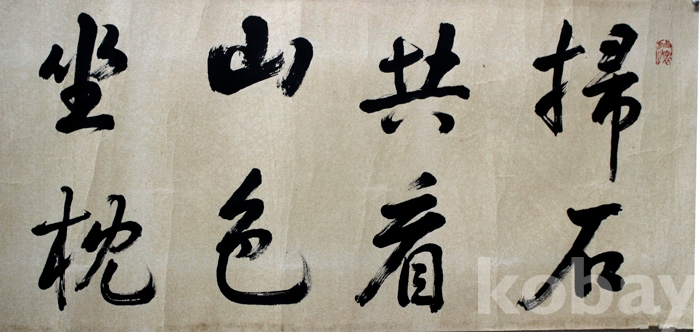 掃石
共看
山色
坐枕
kobay